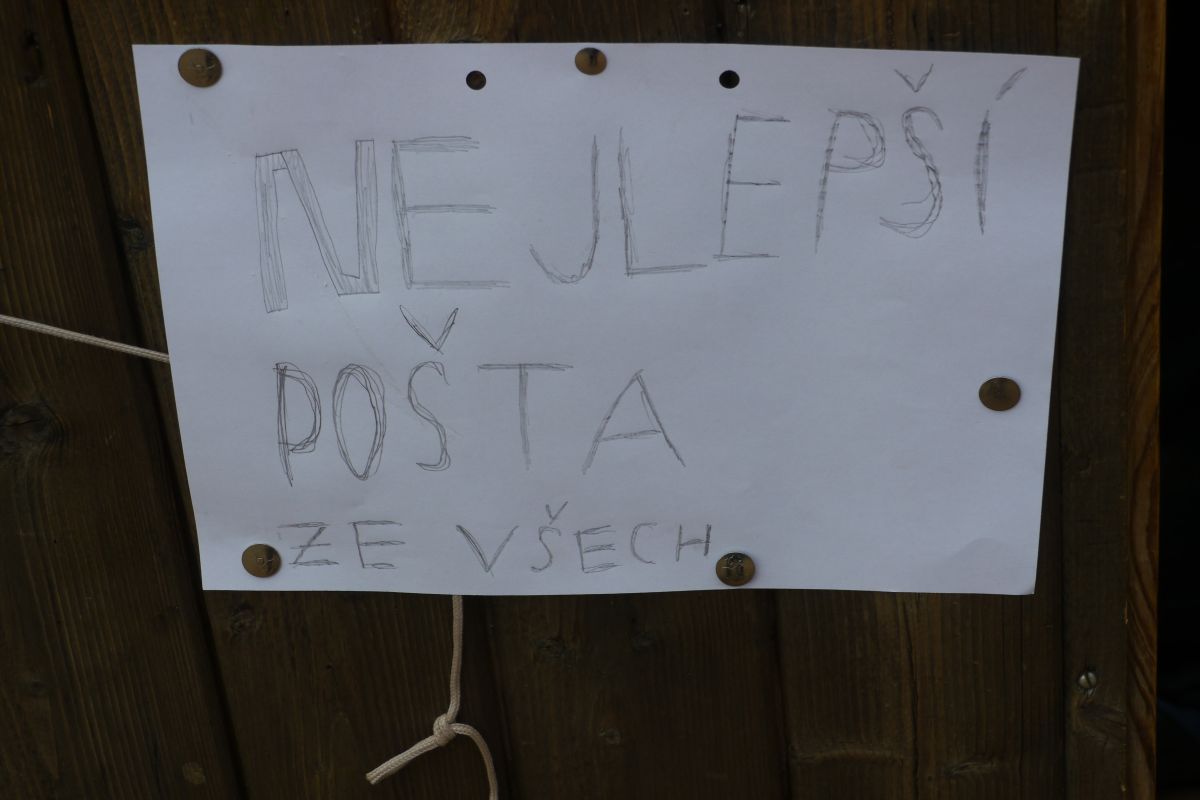 NEJLEPŠÍ
POŠTA
ZE VŠECH